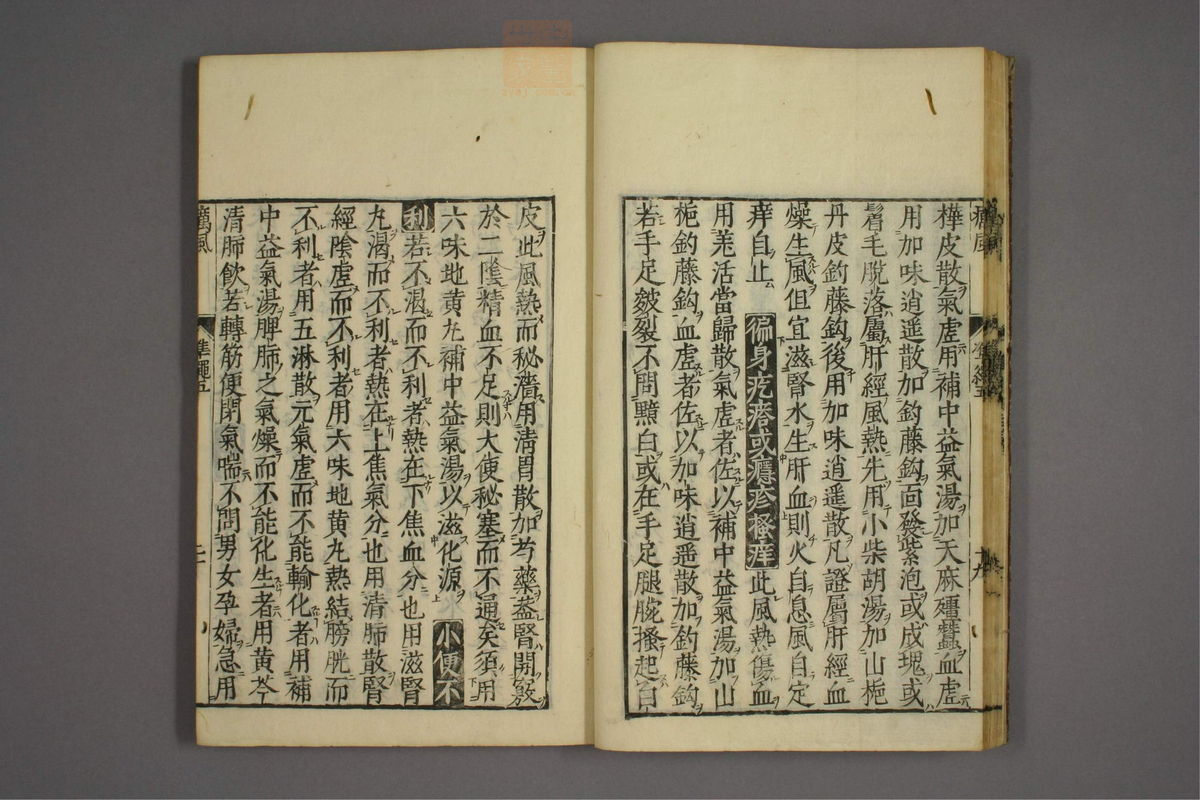 樺皮散氣虛用補中益氣湯加天麻殭蠶血虛
用加味逍遥散加釣藤鈎面發紫泡或成塊或
眉毛脫落屬肝經風熱先用小柴胡湯加山梔
丹皮釣藤鈎後用加味逍遥散凡證屬肝經血
燥生風但宜滋腎水生肝血則火自息風自定
痒自止 徧身疙瘩或癮疹搔痒此風熱傷血
用羗活當歸散氣虛者佐以補中益氣湯加山
梔釣藤鈎血虛者佐以加味逍遥散加釣藤鈎
若手足皴裂不問黯白或在手足腿腕搔起白
皮此風熱而秘濇用淸胃散加芍藥蓋腎開竅
於二陰精血不足則大便秘塞而不通矣須用
六味地黄丸補中益氣湯以滋化源 小便不
利若不渴而不利者熱在下焦血分也用滋腎
丸渴而不利者熱在上焦氣分也用清肺散腎
經陰虛而不利者用六味地黄丸熱結膀胱而
不利者用五淋散元氣虛而不能輸化者用補
中益氣湯脾肺之氣燥而不能化生者用黄芩
清肺飲若轉筋便閉氣喘不問男女孕婦急用
癘風
準繩五